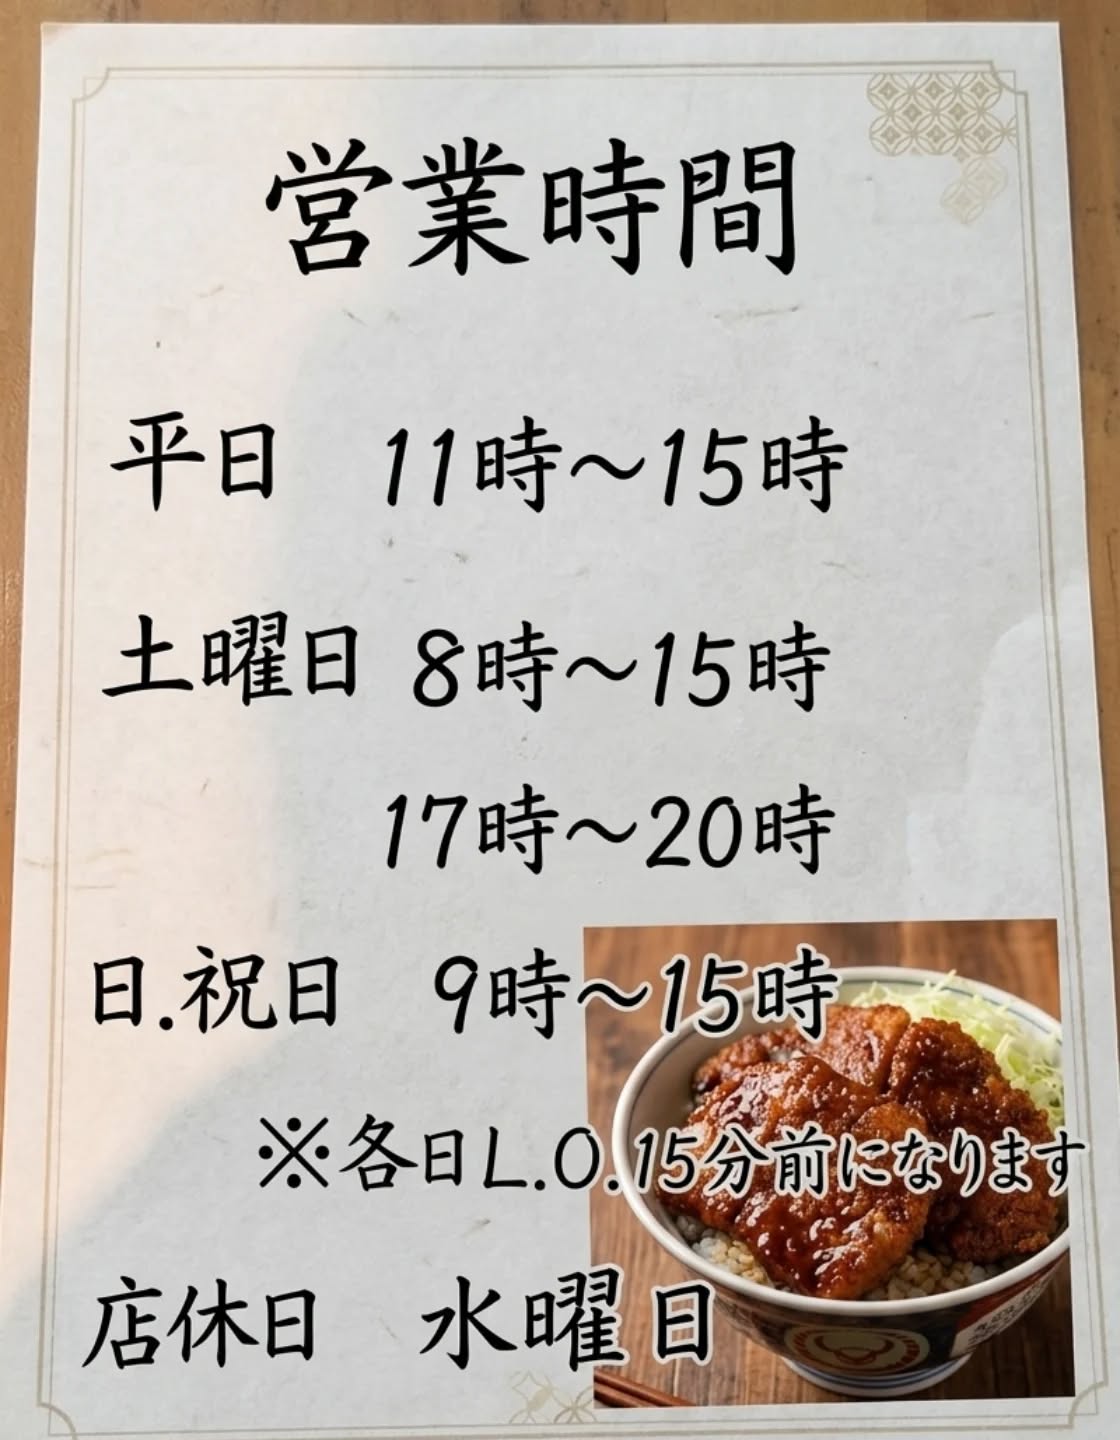 営業時間
平日 11時～15時
土曜日 8時～15時
17時～20時
日.祝日 9時～15時
※各日L.O.15分前になります
店休日 水曜日